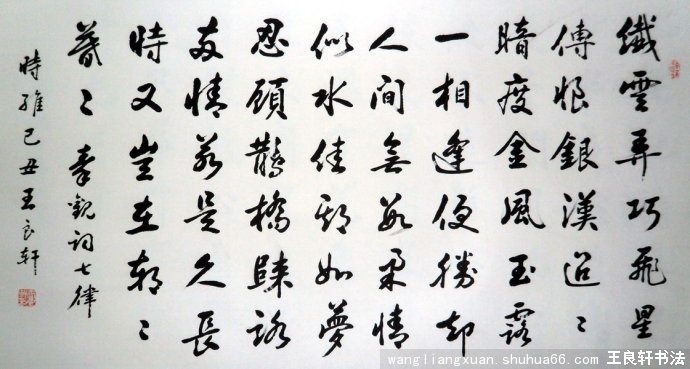 纖雲弄巧飛星
傳恨銀漢迢〻
暗度金風玉露
一相逢便勝却
人間無數柔情
似水佳期如夢
忍顧鵲橋歸路
兩情若是久長
時又豈在朝〻
暮〻秦觀詞七律
時維己丑王良軒
wangliangxuan.shuhua66.com 王良轩书法